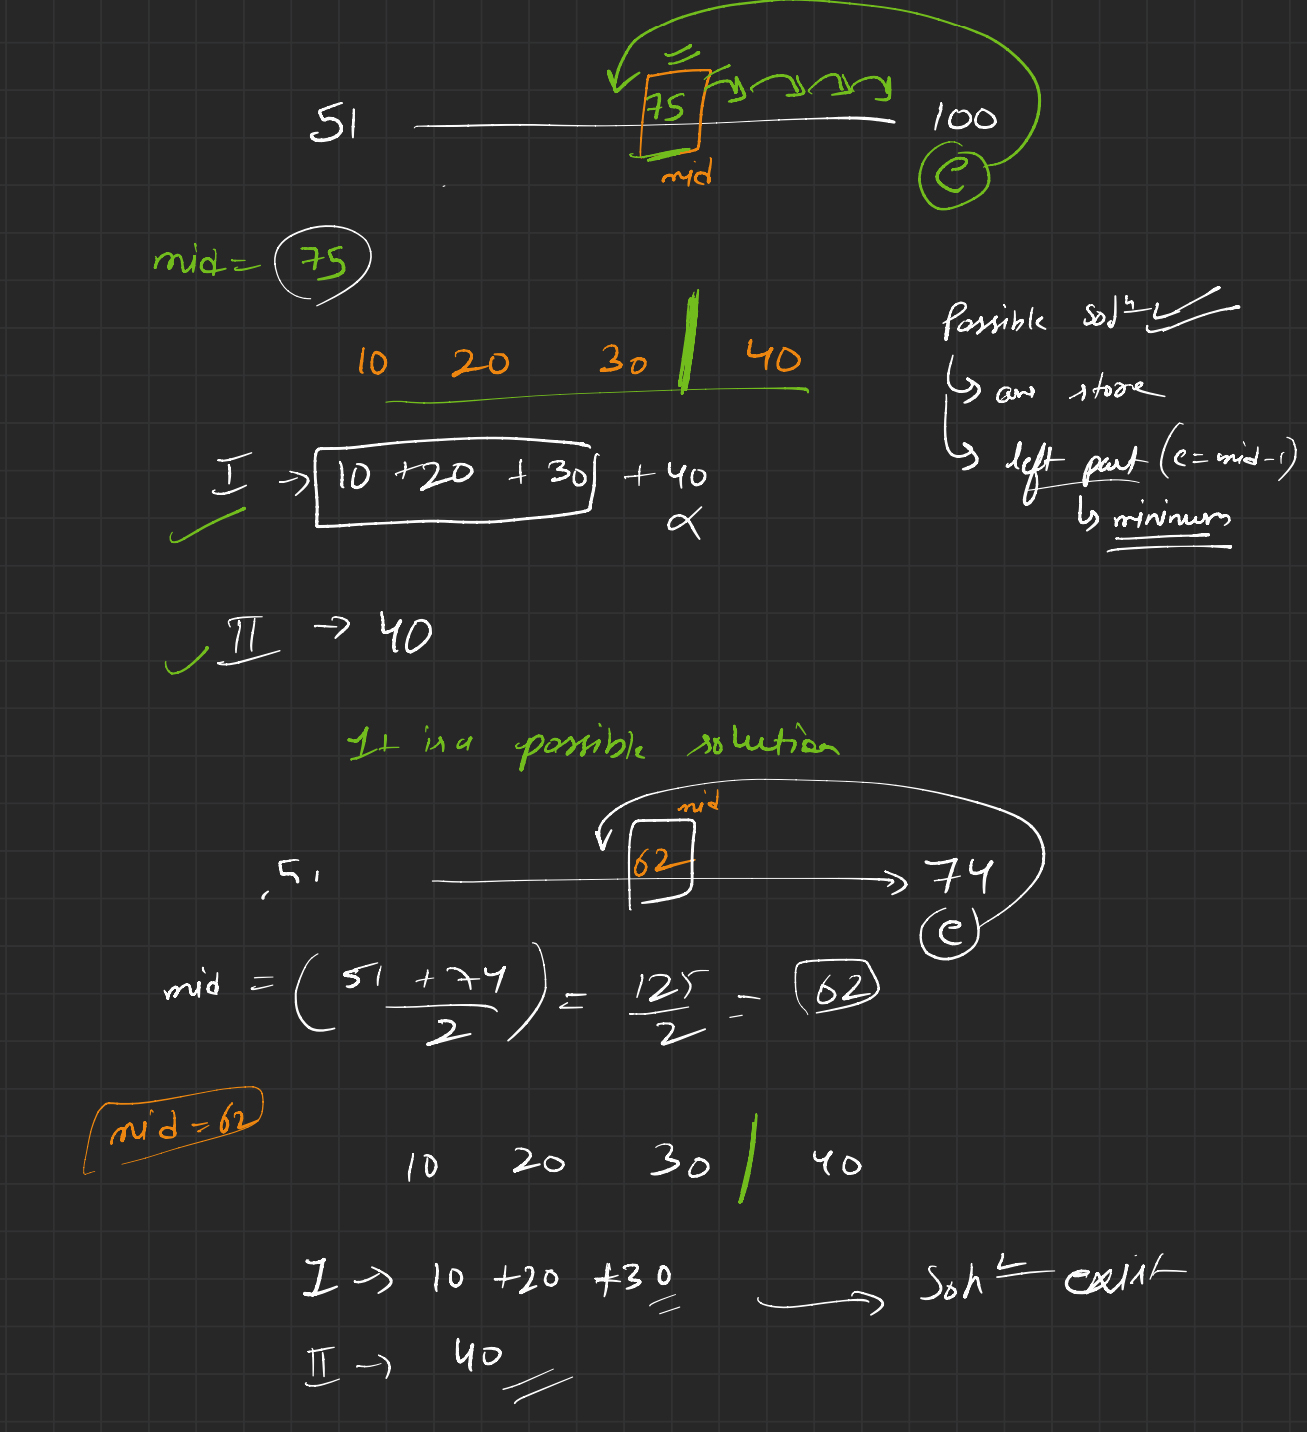 51 75 100
mid e
mid = 75
10 20 30 | 40
Possible solⁿ
↳ ans store
↳ left part (e = mid-1)
↳ minimum
I → 10 + 20 + 30 + 40
II → 40
It is a possible solution
mid
51 62 → 74
e
mid = (51 + 74 / 2) = 125 / 2 = 62
mid = 62
10 20 30 | 40
I → 10 + 20 + 30 → Solⁿ exist
II → 40